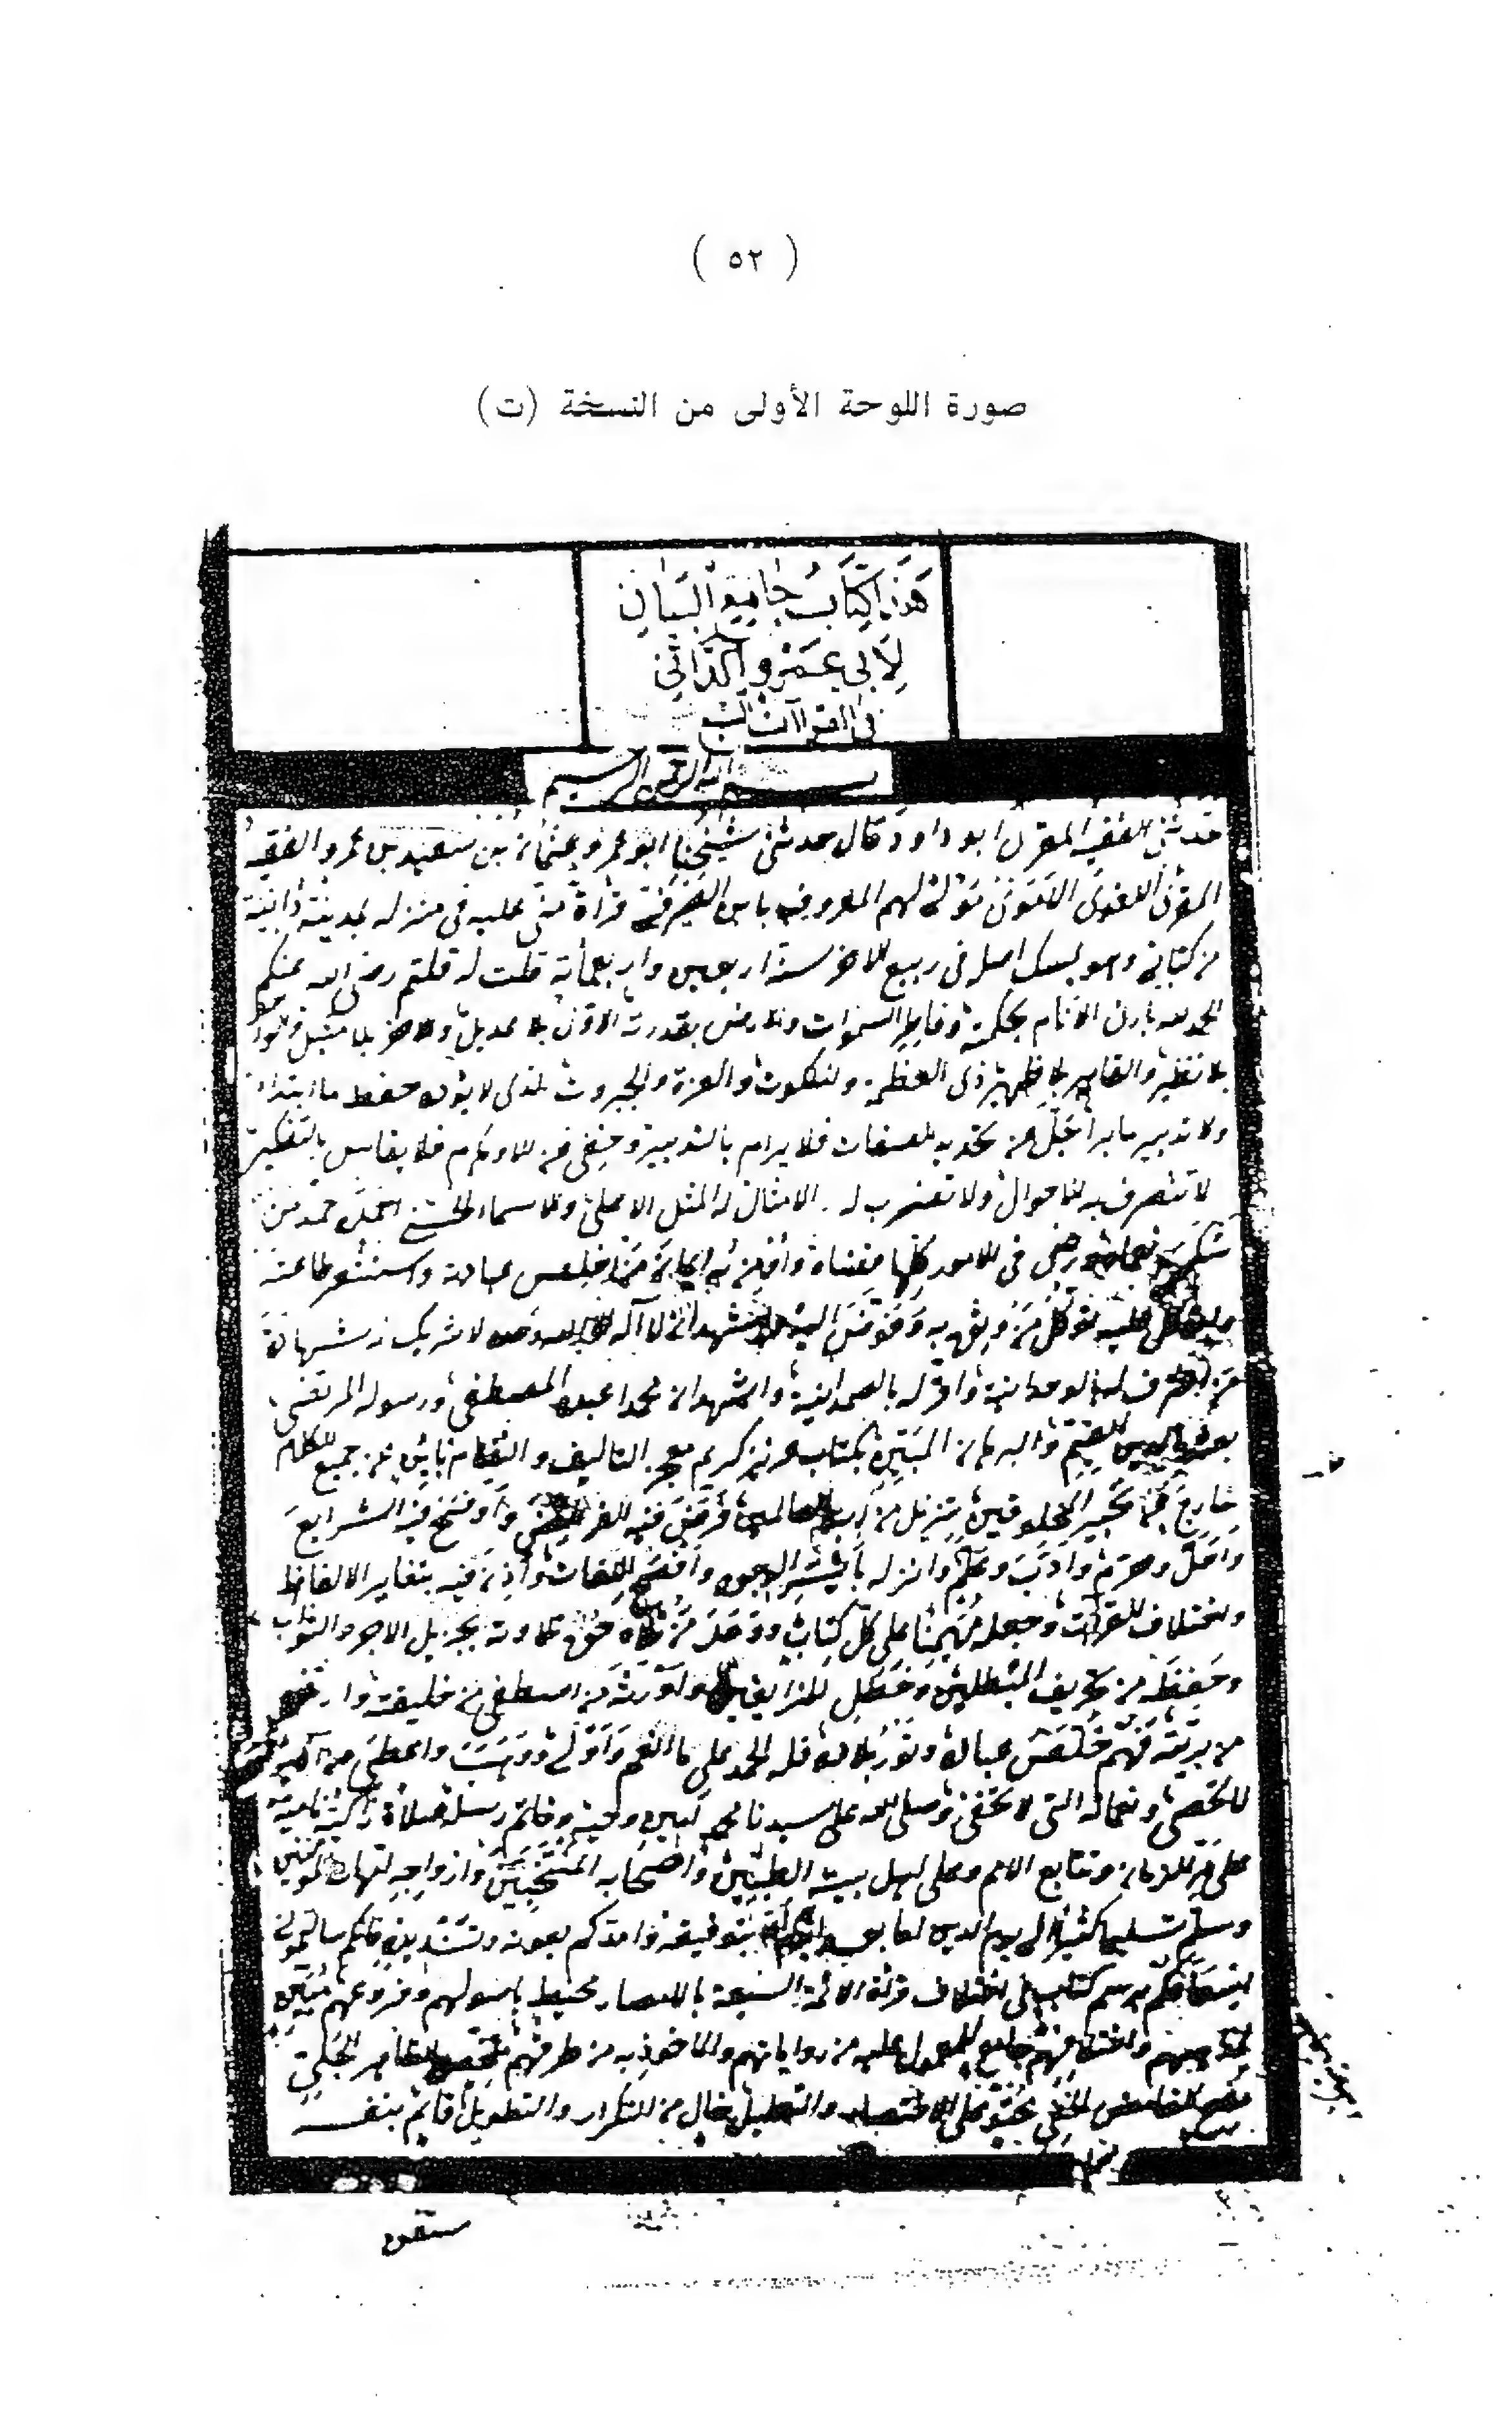 ( ٥٢ )
صورة اللوحة الأولى من النسخة (ت)
هَذَا كِتَابُ جَامِعِ البَيَانِ
لِأَبِي عَمْرٍو الدَّانِي
في القراآت السبع
بسم الله الرحمن الرحيم
حدثني الفقيه المقرئ ابو داود قال حدثني شيخنا ابو عمرو عثمان بن سعيد بن عمرو الفقيه
المقرئ اللغوى الاموى مولاهم المعروف بابن الصيرفي قراة مني عليه في منزله بمدينة دانية
من كتابي وهو يمسك اصله في ربيع الاخر سنة اربعين واربعمأية قلت له قلتم رضي الله عنكم
الحمد لله بارئ الانام بحكمته وفاطر السموات والارض بقدرته الاول بلا عديل والاخر بلا مثيل والواحد
بلا نظير والقاهر بلا ظهير ذي العظمة والملكوت والعزة والجبروت الذي لا يؤده حفظ ما ابتدا
ولا تدبير ما برا جل عن تحديد الصفات فلا يرام بالتدبير وخفي عن الاوهام فلا يقاس بالتفكير
لا تتصرف به الاحوال ولا تضرب له الامثال له المثل الاعلى والاسماء الحسنى احمده حمد من
شكر نعماه ورضي في الامور كلها قضاه وأومن به ايمان من اخلص عبادته واستشعر طاعته
واتوكل عليه توكل من وثق به وفوض اليه واشهد ان لا اله الا الله وحده لا شريك له شهادة
من اعترف له بالوحدانية واقر له بالصمدانية واشهد ان محمدا عبده المصطفى ورسوله المرتضى
بعثه بالدين القيم والبرهان المبين بكتاب عزيز كريم معجز التاليف والنظام بائن عن جميع الكلام
خارج عن تحبير المخلوقين تنزيل من رب العالمين فرض فيه الفرائض واوضح فيه الشرايع
واحل وحرم وادب وعلم وانزله بأيسر الوجوه وافصح اللغات وأذن فيه بتغاير الالفاظ
واختلاف القراات وجعله مهيمنا على كل كتاب ووعد من تلاه حق تلاوته بجزيل الاجر والثواب
وحفظه من تحريف المبطلين وخطل الزايغين واورثه من اصطفى من خليقته وارتضى
من بريته فهم خاصة عباده ونور بلاده فله الحمد على ما انعم واولى ووهب واعطى من آلائه
التي لا تحصى ونعمائه التي لا تخفى وصلى الله على سيدنا محمد نبيه وخاتم رسله صلاة زاكية نامية
على مر الازمان وتتابع الامم وعلى اهل بيته الطيبين واصحابه المنتخبين وازواجه امهات المومنين
وسلم تسليما كثيرا الى يوم الدين اما بعد ايدكم الله بتوفيقه وامدكم بعونه وتسديده فانكم سالتموني
اسعافكم برسم كتاب في اختلاف قراة الائمة السبعة بالامصار محيط باصولهم وفروعهم مبين
لمذاهبهم واختلافهم جامع للمعمول عليه من رواياتهم والماخوذ به من طرقهم ملخص للظاهر الجلي
موضح للغامض الخفي محتو على الاختصار والتقليل خال من التكرار والتطويل قائم بنفسه